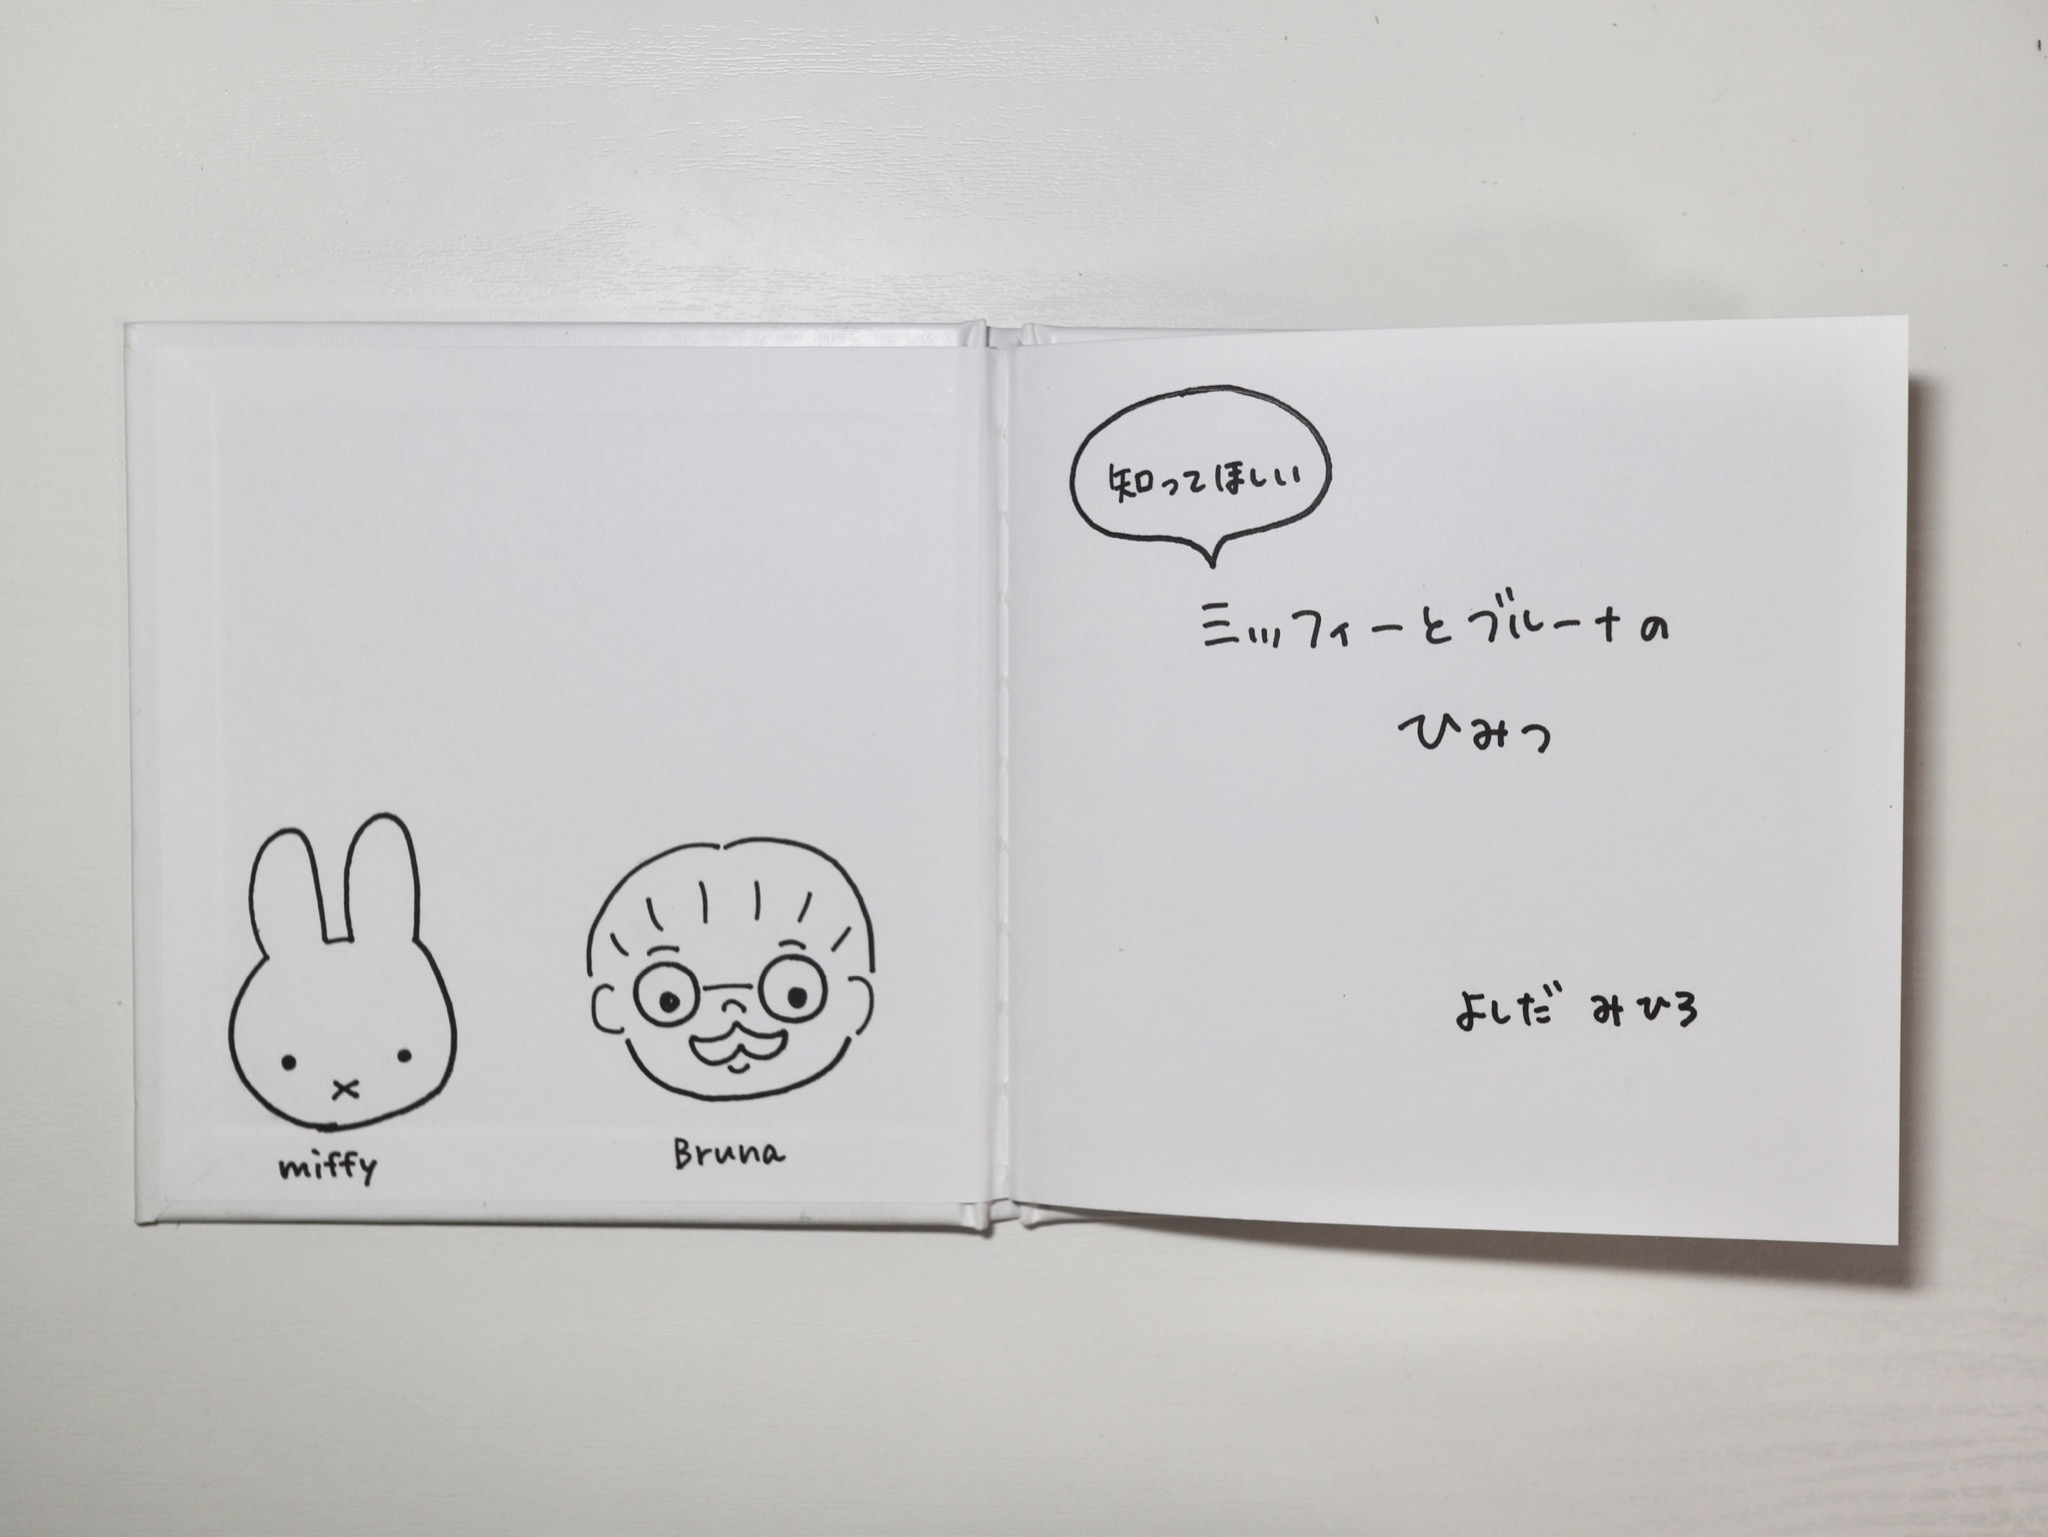 miffy
Bruna
知ってほしい
ミッフィーとブルーナの
ひみつ
よしだ みひろ